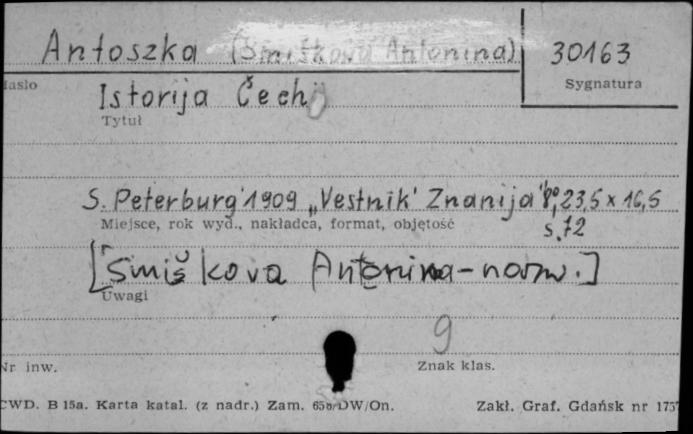 Antoszka (Smiškova Antonina) 30163
Hasło Sygnatura
Istorija Čechij
Tytuł
S. Peterburg' 1909 „Vestnik' Znanija" 8°, 23,5 x 16,5
Miejsce, rok wyd., nakładca, format, objętość s. 72
[Smiškova Antonina - nazw.]
Uwagi
9
Nr inw. Znak klas.
CWD. B 15a. Karta katal. (z nadr.) Zam. DW/On. Zakł. Graf. Gdańsk nr 1757